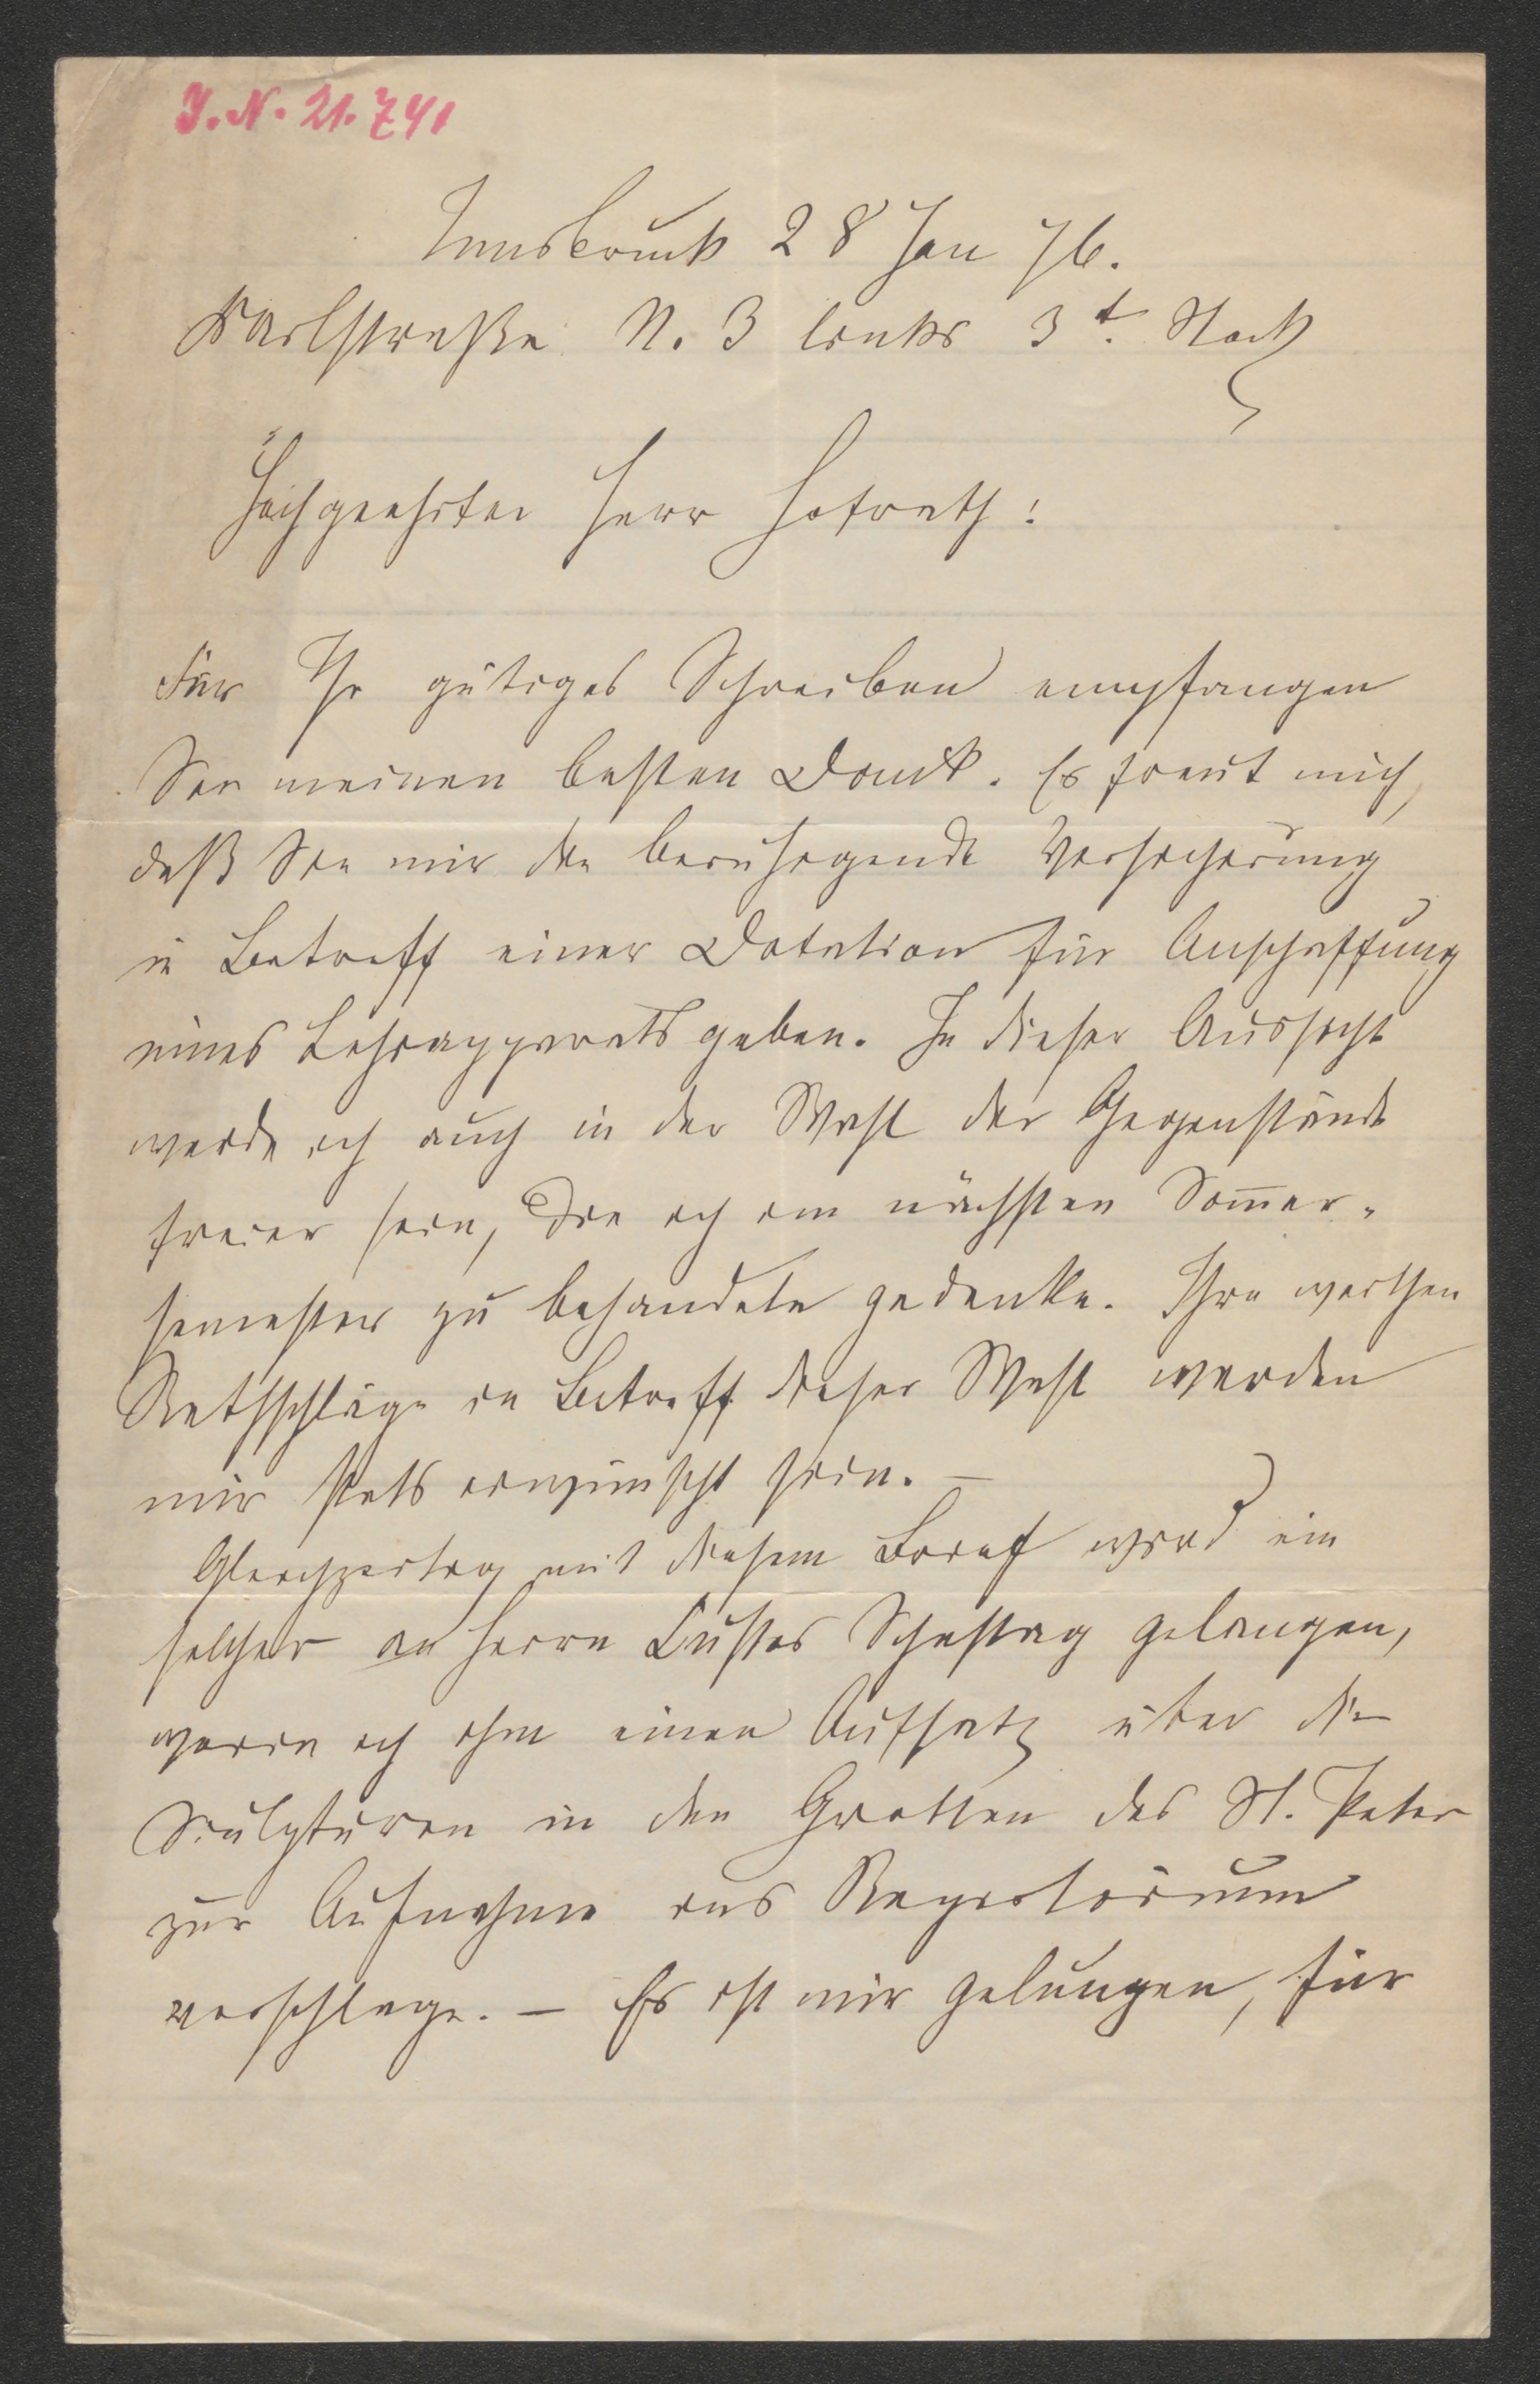 J. N. 21.741
Innsbruck 28 Jan 76.
Karlstraße N. 3 links 3t. Stock
Hochgeehrter Herr Hofrath!
Für Ihr gütiges Schreiben empfangen
Sie meinen besten Dank. Es freut mich,
daß Sie mir die beruhigende Versicherung
in Betreff einer Dotation für Anschaffung
eines Lehrapparats geben. In dieser Aussicht
werde ich auch in der Wahl der Gegenstände
freier sein, die ich im nächsten Som̅er-
semester zu behandeln gedenke. Ihre werthen
Rathschläge in Betreff dieser Wahl werden
mir stets erwünscht sein. —
Gleichzeitig mit diesem Brief wird ein
solcher an Herrn Custos Schestag gelangen,
worin ich ihm einen Aufsatz über die
Sculpturen in den Grotten des St. Peter
zur Aufnahme ins Repertorium
vorschlage. — Es ist mir gelungen, für